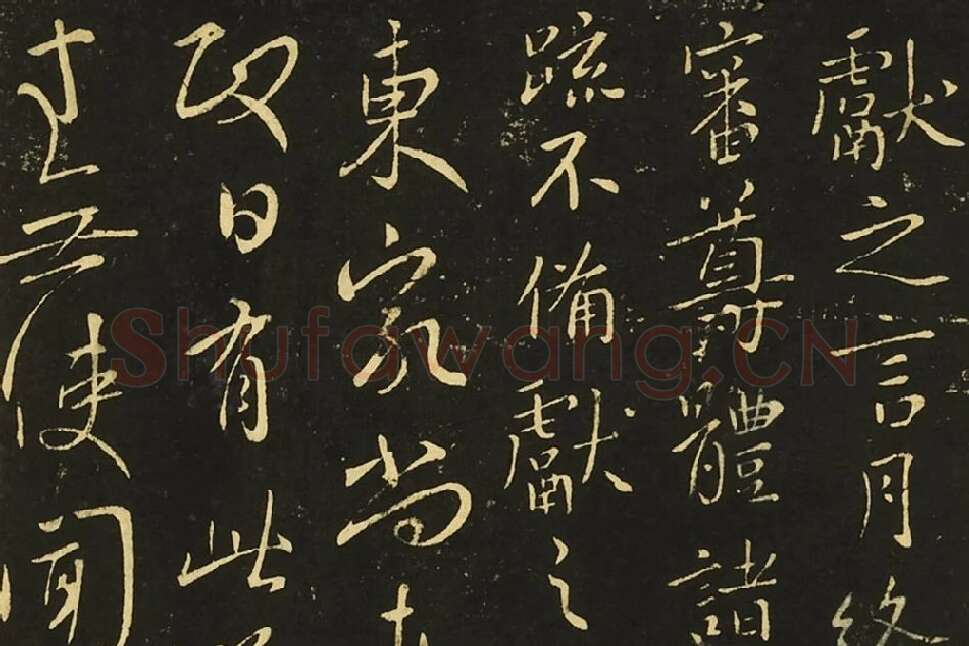 獻之言月終
審尊體諸
疏不備獻之
東家尚
日有此
使聞
Shufawang.CN